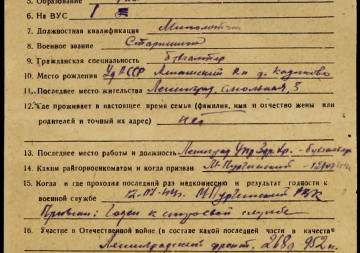 5. Образование
6. На ВУС 1
7. Должностная квалификация Минометчик
8. Военное звание Старшина
9. Гражданская специальность Бухгалтер
10. Место рождения Уд АССР р-н д.
11. Последнее место жительства Ленинград, Смольная, 3
12. Где проживает в настоящее время семья (фамилия, имя и отчество жены или
родителей и точный их адрес) нет
13. Последнее место работы и должность Ленинград - бухгалтер
14. Каким райгорвоенкоматом и когда призван
15. Когда и где проходил последний раз медкомиссию и результат годности к
военной службе 12. РВК
Признан: Годен к строевой службе
16. Участие в Отечественной войне (в составе какой последней части в качестве
Ленинградский фронт, 268 952